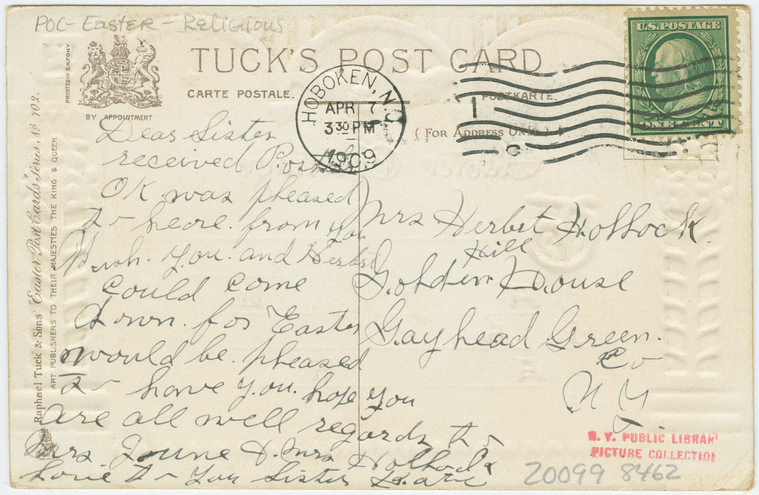 POC - Easter - Religious
TUCK'S POST CARD
CARTE POSTALE.
POSTKARTE.
(FOR ADDRESS ONLY)
BY APPOINTMENT
PRINTED IN SAXONY
U.S. POSTAGE
ONE CENT
HOBOKEN, N.J.
APR 7
3 30 PM
1909
1
C
Raphael Tuck & Sons' "Easter" Post Cards Series, No. 702.
ART PUBLISHERS TO THEIR MAJESTIES THE KING & QUEEN
Dear Sister
received
OK was pleased
to heare. from you
Wish. you. and Herbet
could come
down. for Easter
would be. pleased
to have you. hope you
are all well regards to
Mrs. & Mrs Hollock
love to you Sister
Mrs Herbet Hollock.
Hill
Golden House
Gayhead Green.
Co
N Y
N. Y. PUBLIC LIBRARY
PICTURE COLLECTION
20099 8462